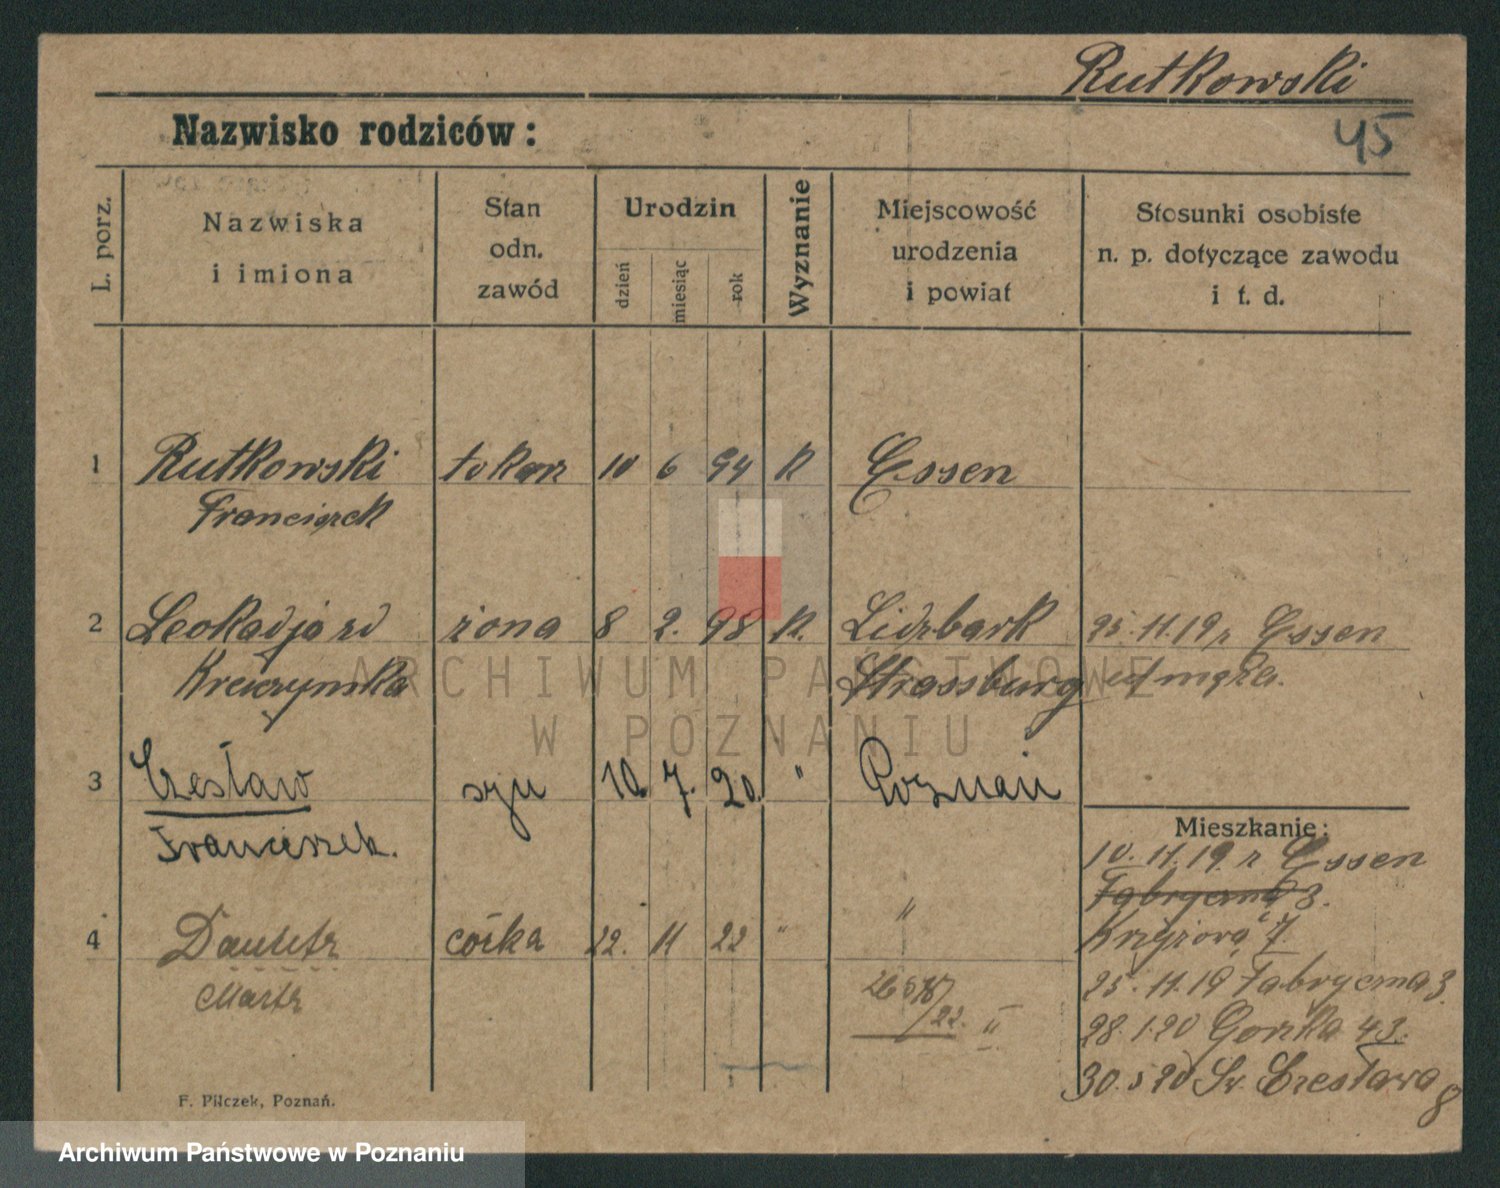 Rutkowski
Nazwisko rodziców:
45
L. porz.
Nazwiska
i imiona
Stan
odn.
zawód
Urodzin
dzień
miesiąc
rok
Wyznanie
Miejscowość
urodzenia
i powiat
Stosunki osobiste
n. p. dotyczące zawodu
i t. d.
1 Rutkowski tokarz 10 6 94 k Essen
Franciszek
2 Leokadja zd żona 8 2. 98 k. Lidzbark 25.11.19 z Essen
Strassburg od męża.
ARCHIWUM PAŃSTWOWE
W POZNANIU
3 Czesław syn 10. 7. 20. " Poznań
Franciszek.
Mieszkanie:
10.11.19. z Essen
Fabryczna 3.
4 córka 22. 11 22 " "
Krzyżowa 7.
Marta
25.11.19 Fabryczna 3.
28.1.20 Gorska 43.
30.5 20 Św. Czesława
8
F. Pilczek, Poznań.
Archiwum Państwowe w Poznaniu